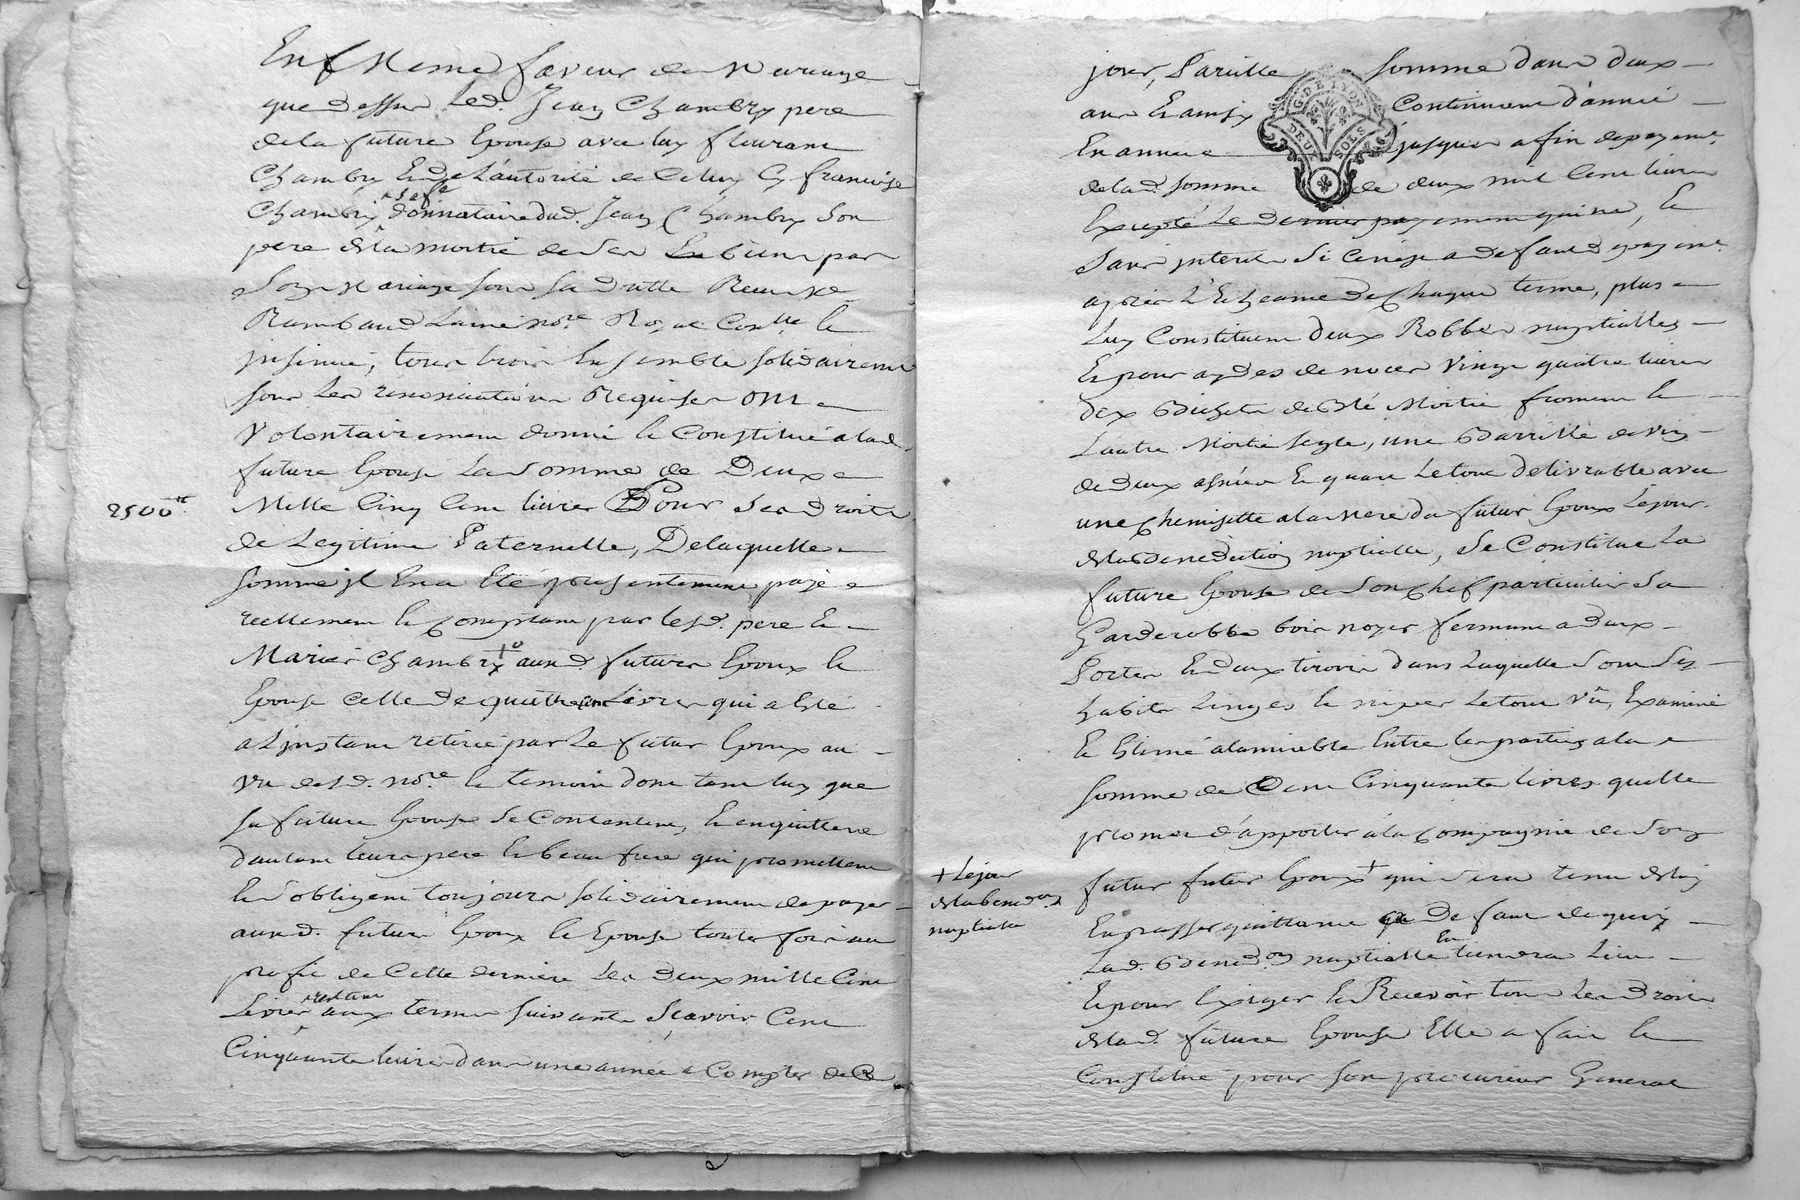 En Meme faveur de Mariage
que dessus Led. Jean Chambry pere
de la future Epouse avec luy fleurant
Chambry Et de L'autorité de Celuy Cy francoise
Chambry donnataire dud. Jean Chambry Son
pere de la moitié de Ses biens par
Son Mariage sous sa datte Reçu Me
Rambaud Laine nore. Royal Contlle et
jnsinué, tous trois Ensemble solidairement
sous Les renonciations Requises ont
Volontairement donné et Constitué a lad.
future Epouse La Somme de Deux
2500lt.
Mille Cinq Cent livres Pour Ses droits
de Legitime Paternelle, De laquelle
somme jl En a Eté presentement payé
reellement et Comptant par lesd. pere et
Mariés Chambry auxd. futurs Epoux et
Epouse celle de quatre cent Livres qui a Eté
a L'jnstant retirée par Le futur Epoux au
vu desd. nore. et temoins dont tant luy que
sa future Epouse Se Contentent, et en quittent
d'autant leurs pere et beau frere qui promettent
et S'obligent toujours solidairement de payer
auxd. futurs Epoux et Epouse toutes fois au
profit de Cette derniere Les deux mille Cent
Livres restant aux termes suivants Sçavoir Cent
Cinquante livres dans une année a Compter de Ce
jour, Pareille somme dans deux
G. DE LYON
DEUX SOLS
ans Et ainsy Continuant d'année
En année jusques a fin de payemt.
de lad. somme de deux mil Cent livres
Excepté Le dernier payement qui ne, le
Sans jnterets Si Ce n'est a defaut de payemt.
apres L'Echeance de Chaque terme, plus
Luy Constituent deux Robbes nuptialles
Et pour aydes de noces Vingt quatre livres
dix Bichets de Blé Moitié froment et
L'autre Moitié segle, une Barrille de vin
de deux asnées Et quart Le tout delivrable avec
une Chemisette a la Mere du futur Epoux Le jour
de la Benediction nuptialle, Se Constitue La
future Epouse de Son Chef particulier Sa
Garderobbe bois noyer fermant a deux
Portes Et deux tiroirs dans Laquelle Sont Ses
habits Linges et nippes Le tout Vû, Examiné
Et Estimé a l'amiable Entre les parties a la
somme de Cent Cinquante livres qu'elle
promet d'apporter a la Compagnie de Son
+ Le jour
de la benedon
nuptialle
futur futur Epoux + qui Sera tenu de luy
En passer quittance de faut de quoy
Lad. Benedon nuptialle En tiendra Lieu
Et pour Exiger et Recevoir tous Les droits
de lad. future Epouse Elle a fait et
Constitué pour Son procureur General